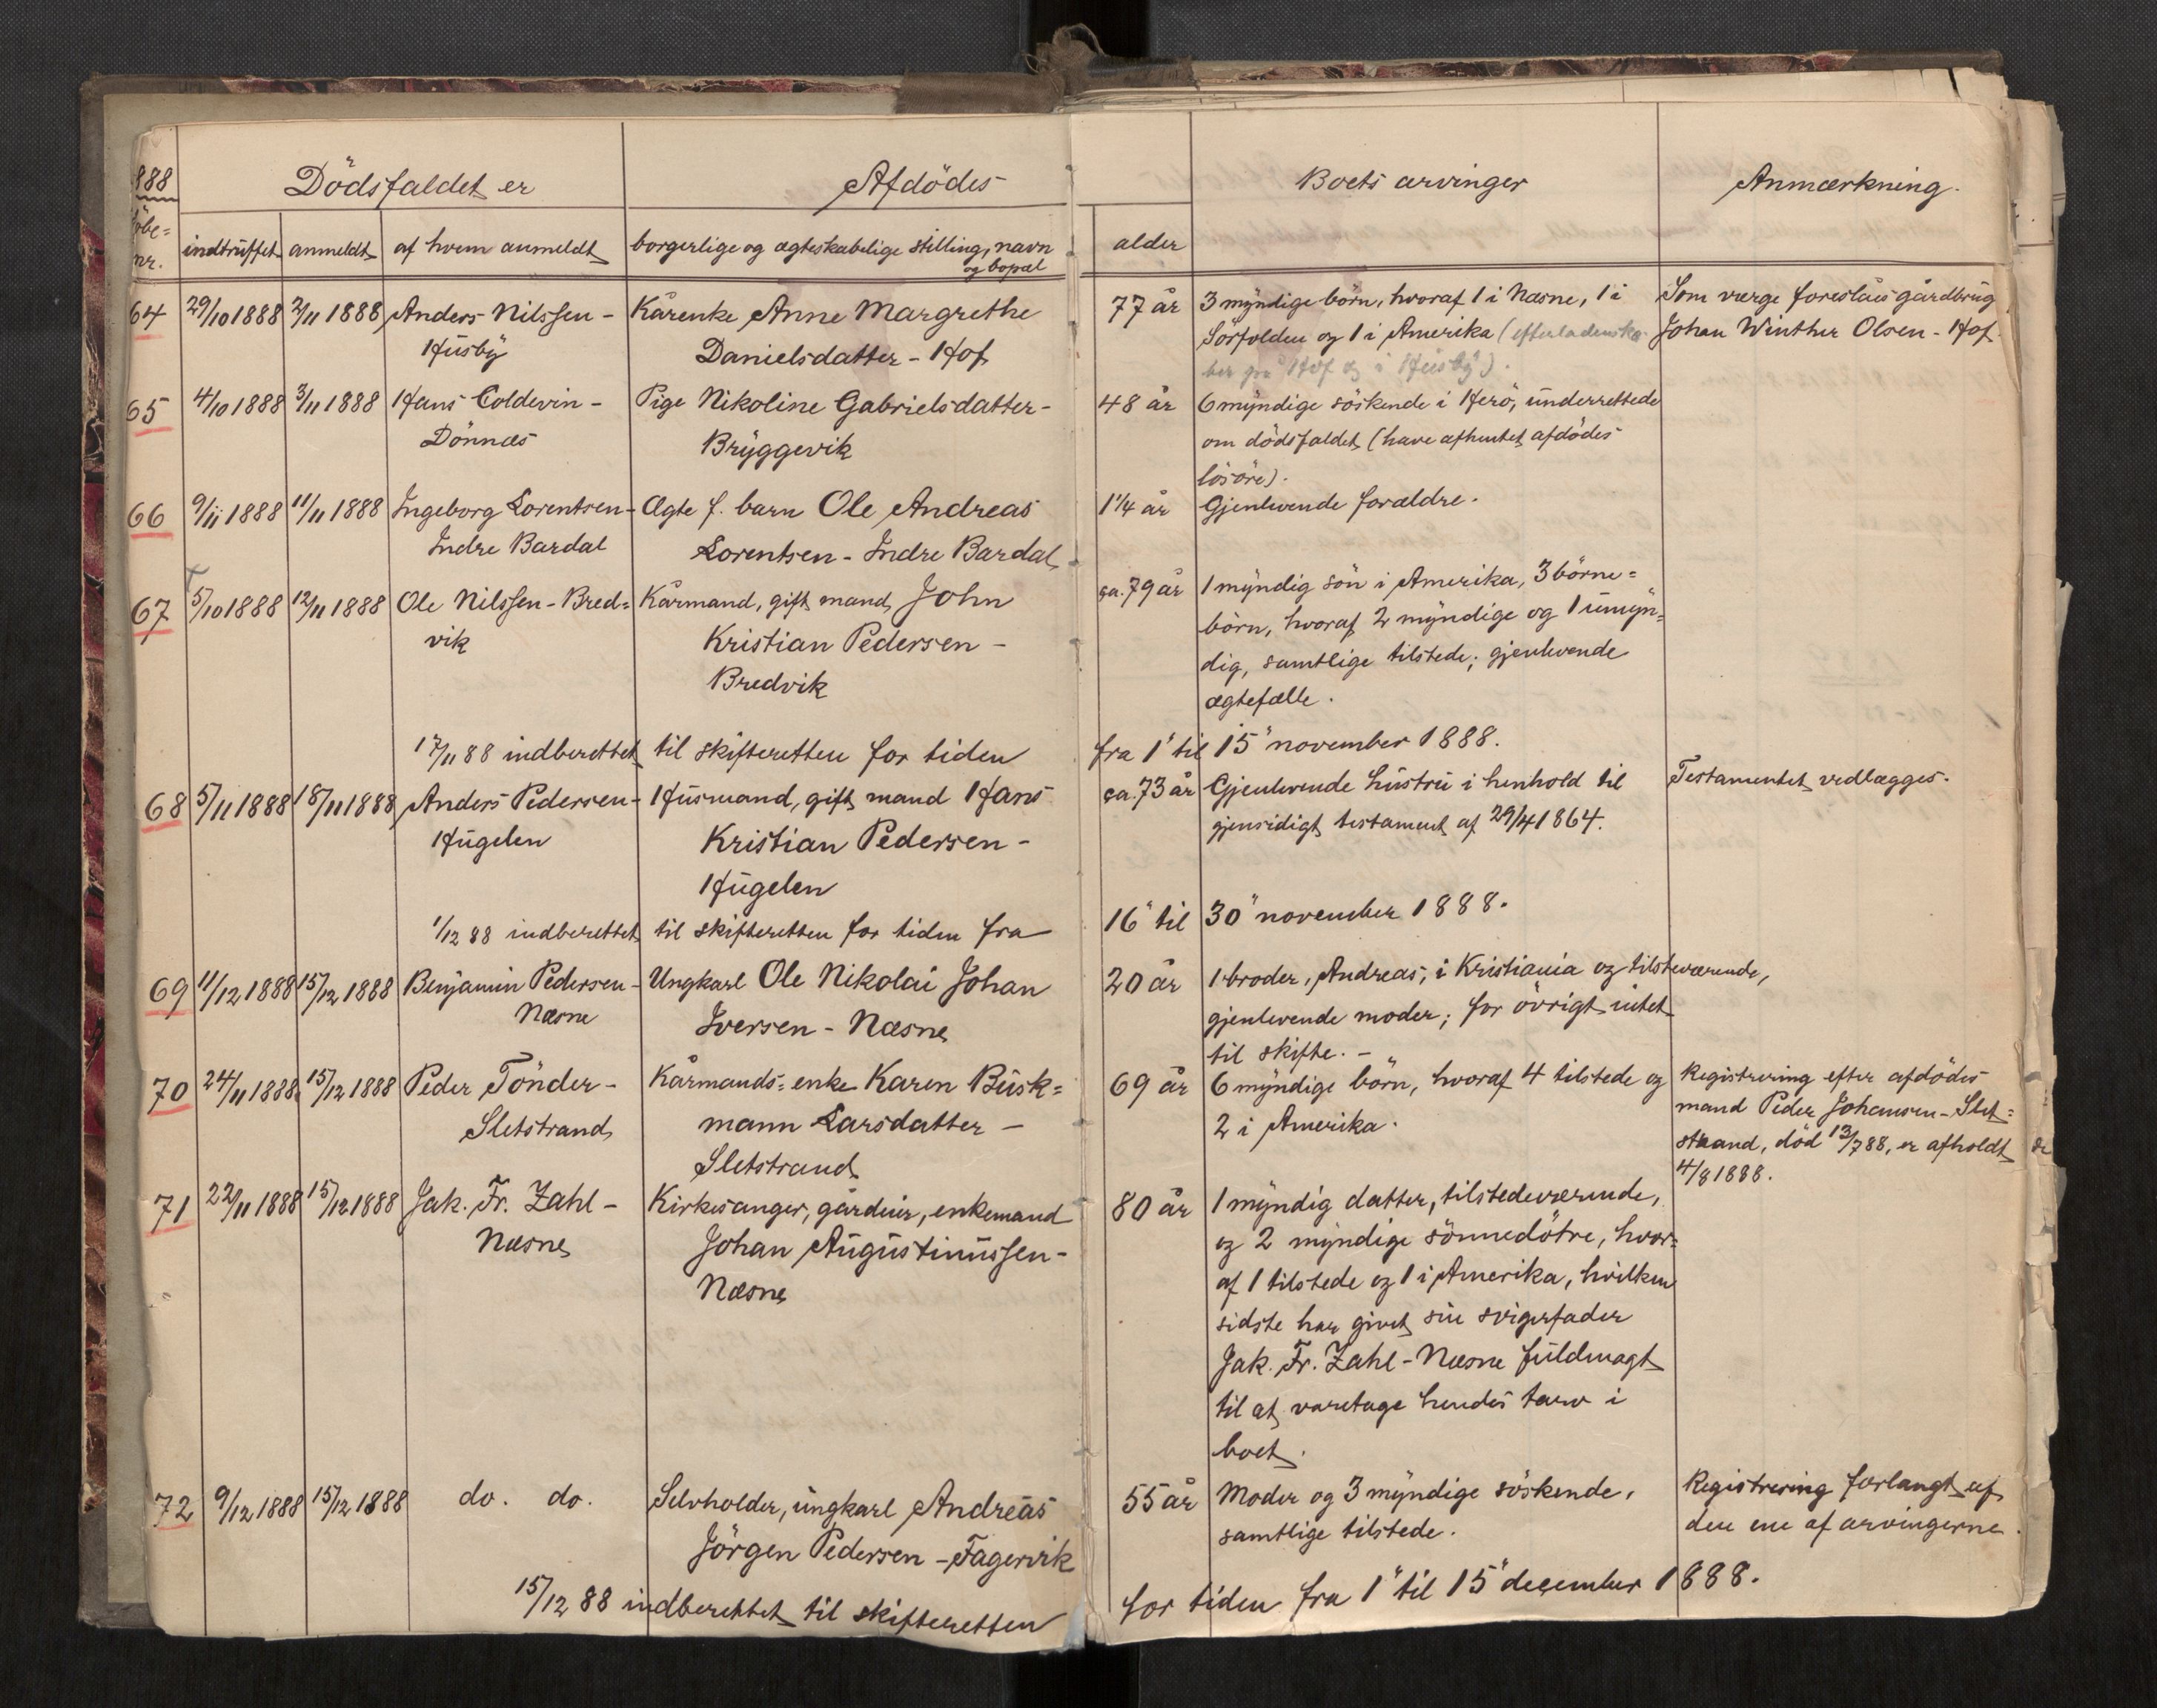 888 Dödsfaldet er Afdödes Boets arvinger Anmærkning.
nr. indtruffet anmeldt af hvem anmeldt borgerlige og ægteskabelige stilling, navn alder
og bopæl
64 29/10 1888 2/11 1888 Anders Nilssen - Kårenke Anne Margrethe 77 år 3 myndige börn, hvoraf 1 i Næsne, 1 i Som værge foreslåes gårdbrug
Husby Danielsdatter - Hof Sörfolden og 1 i Amerika (efterladenska- Johan Winther Olsen - Hof.
ber på Hof og i Husby).
65 4/10 1888 3/11 1888 Hans Coldevin - Pige Nikoline Gabrielsdatter - 48 år 6 myndige söskende i Herö, underrettede
Dönnæs Bryggevik om dödsfaldet (have afhentet afdödes
lösöre).
66 9/11 1888 11/11 1888 Ingeborg Lorentsen - Ægte f. barn Ole Andreas 1 1/4 år Gjenlevende forældre.
Indre Bardal Lorentsen - Indre Bardal
67 5/10 1888 12/11 1888 Ole Nilssen - Bred= Kårmand, gift mand John ca. 79 år 1 myndig sön i Amerika, 3 börne=
vik Kristian Pedersen - börn, hvoraf 2 myndige og 1 umyn=
Bredvik dig, samtlige tilstede; gjenlevende
ægtefælle.
17/11 88 indberettet til skifteretten for tiden fra 1" til 15" november 1888.
68 5/11 1888 18/11 1888 Anders Pedersen - Husmand, gift mand Hans ca. 73 år Gjenlevende hustru i henhold til Testamentet vedlægges.
Hugelen Kristian Pedersen - gjensidigt testament af 29/4 1864.
Hugelen
1/12 88 indberettet til skifteretten for tiden fra 16" til 30" november 1888.
69 11/12 1888 15/12 1888 Benjamin Pedersen - Ungkarl Ole Nikolai Johan 20 år 1 broder, Andreas, i Kristiania og tilsteværende,
Næsne Iversen - Næsne gjenlevende moder; for övrigt intet
til skifte. -
70 24/11 1888 15/12 1888 Peder Tönder - Kårmands= enke Karen Busk= 69 år 6 myndige börn, hvoraf 4 tilstede og Registrering efter afdödes
Sletstrand mann Larsdatter - 2 i Amerika. mand Peder Johansen - Slet=
Sletstrand strand, död 13/7 88, er afholdt
4/8 1888.
71 22/11 1888 15/12 1888 Jak. Fr. Zahl - Kirkesanger, gårdeier, enkemand 80 år 1 myndig datter, tilstedeværende,
Næsne Johan Augustinussen - og 2 myndige sönnedötre, hvor=
Næsne af 1 tilstede og 1 i Amerika, hvilken
sidste har givet sin svigerfader
Jak. Fr. Zahl - Næsne fuldmagt
til at varetage hendes tarv i
boet.
72 9/12 1888 15/12 1888 do. do. Selvholder, ungkarl Andreas 55 år Moder og 3 myndige söskende, Registrering forlangt af
Jörgen Pedersen - Fagervik samtlige tilstede. den ene af arvingerne.
15/12 88 indberettet til skifteretten for tiden fra 1" til 15" december 1888.